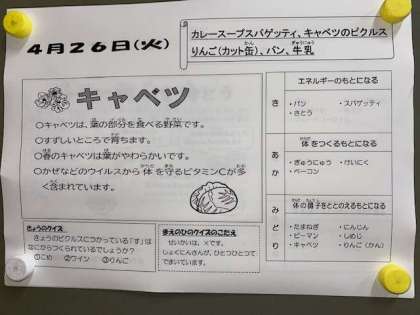 4月26日(火)
カレースープスパゲッティ、キャベツのピクルス
りんご(カット缶)、パン、牛乳
キャベツ
○キャベツは、葉の部分を食べる野菜です。
○すずしいところで育ちます。
○春のキャベツは葉がやわらかいです。
○かぜなどのウイルスから体を守るビタミンCが多
く含まれています。
きょうのクイズ
きょうのピクルスにつかっている「す」は
なにからつくられているでしょうか?
①こめ ②ワイン ③りんご
まえのひのクイズのこたえ
せいかいは、×です。
しょくにんさんが、ひとつひとつて
でまいています。
き
エネルギーのもとになる
・パン ・スパゲッティ
・さとう
あか
体をつくるもとになる
・ぎゅうにゅう ・けいにく
・ベーコン
みどり
体の調子をととのえるもとになる
・たまねぎ ・にんじん
・ピーマン ・しめじ
・キャベツ ・りんご(かん)